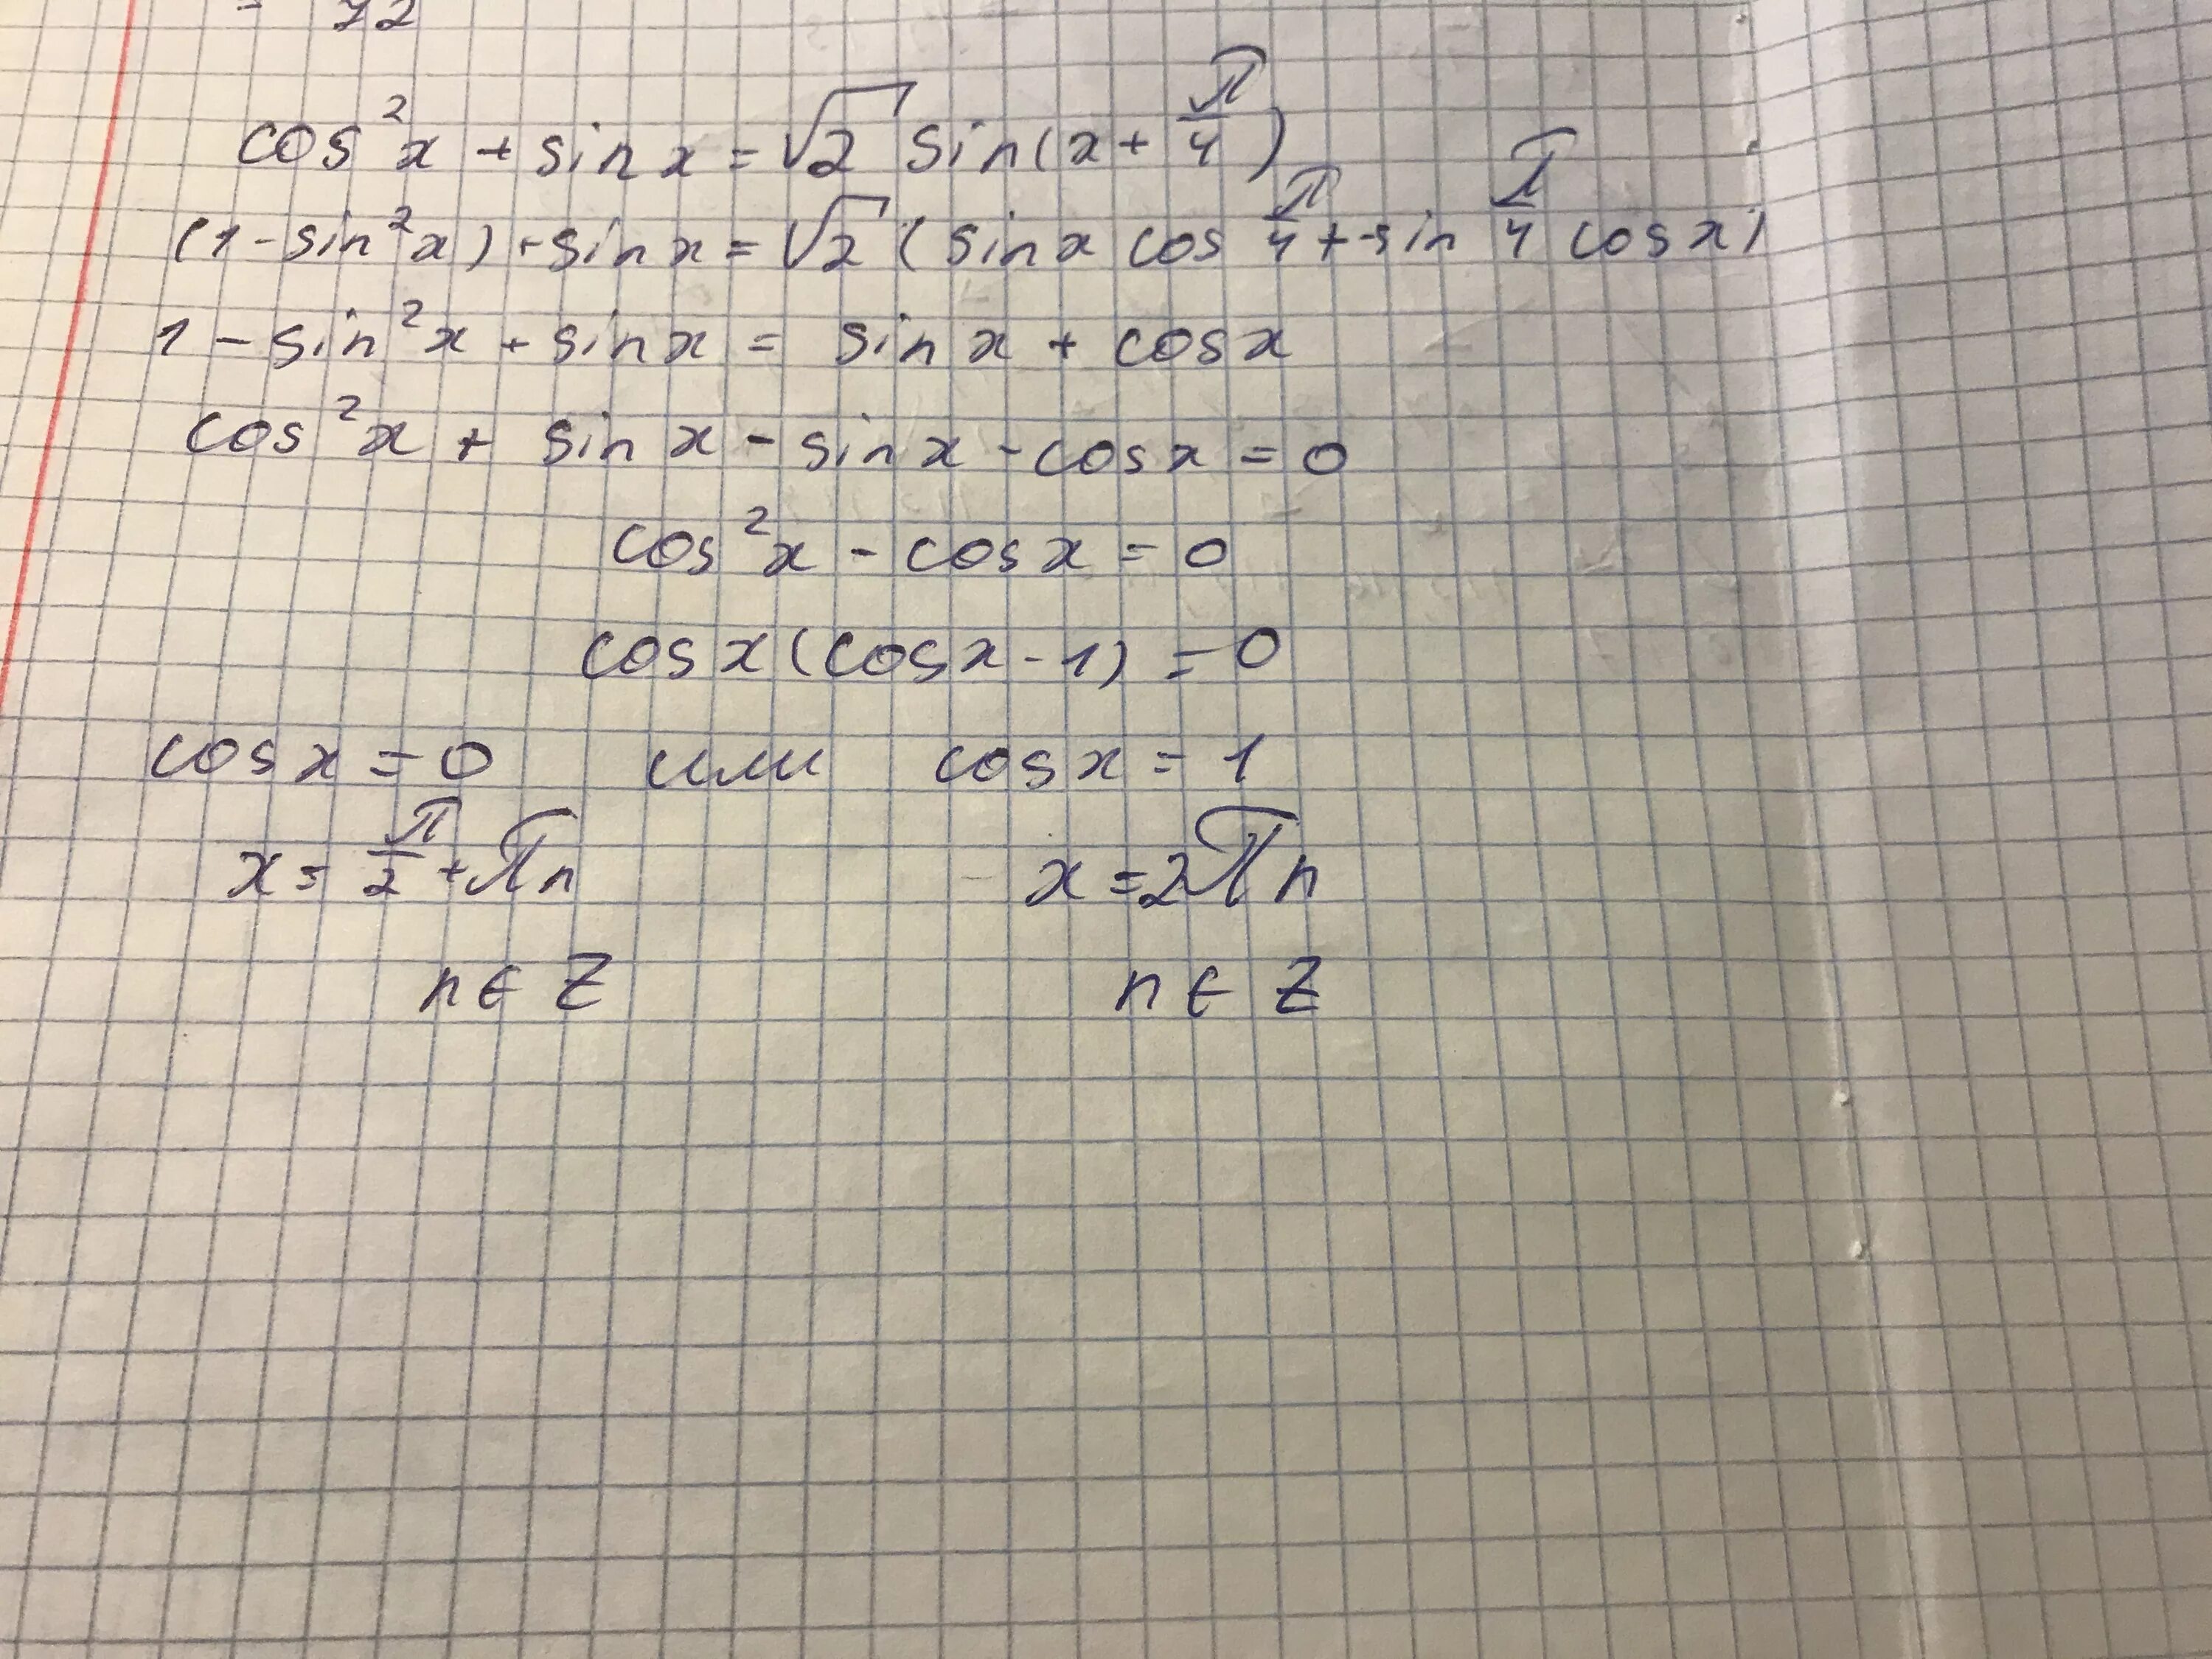 cos²x + sin x = √2 sin(x + π/4)
(1 - sin²x) + sin x = √2 (sin x cos π/4 + sin π/4 cos x)
1 - sin²x + sin x = sin x + cos x
cos²x + sin x - sin x - cos x = 0
cos²x - cos x = 0
cos x (cos x - 1) = 0
cos x = 0 или cos x = 1
x = π/2 + πn x = 2πn
n ∈ Z n ∈ Z